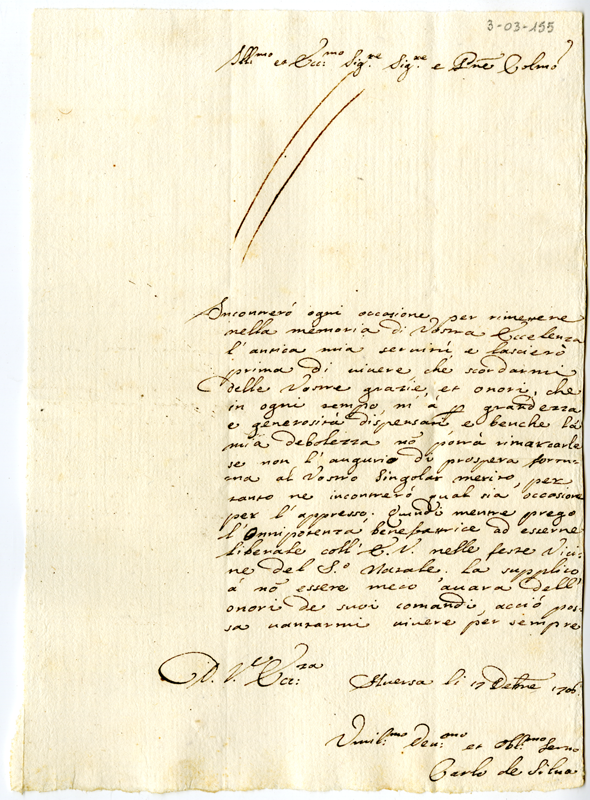 3-03-155
Ill.mo et Ecc.mo Sig.re Sig.re e Pne Colmo
Incontreró ogni occasione per rimettere
nella memoria di Vostra Eccelenza
l'antica mia servitú, e lascieró
prima di vivere che scordarmi
delle Vostre grazie, et onori, che
in ogni tempo m'á p grandezza
e generositá dispensati e benche la
mia debolezza nó potrá rimarcarle
se non l'augurio di prospera fortu
na al Vostro Singolar merito, per
tanto ne incontreró qual sia occasione
per l'appresso. Quindi mentre prego
l'Onnipotenza benefattrice ad esserne
liberale coll'E.V. nelle feste Vici
ne del S.o Natale. La supplico
á nó essere meco avara dell'
onori de suoi comandi, acció pos
sa vantarmi vivere per sempre
D. V.ra Ecc.za
Aversa li 17 Debre 1706
Vmil.mo Deu.mo et Obl.mo Seruo
Carlo de Silua